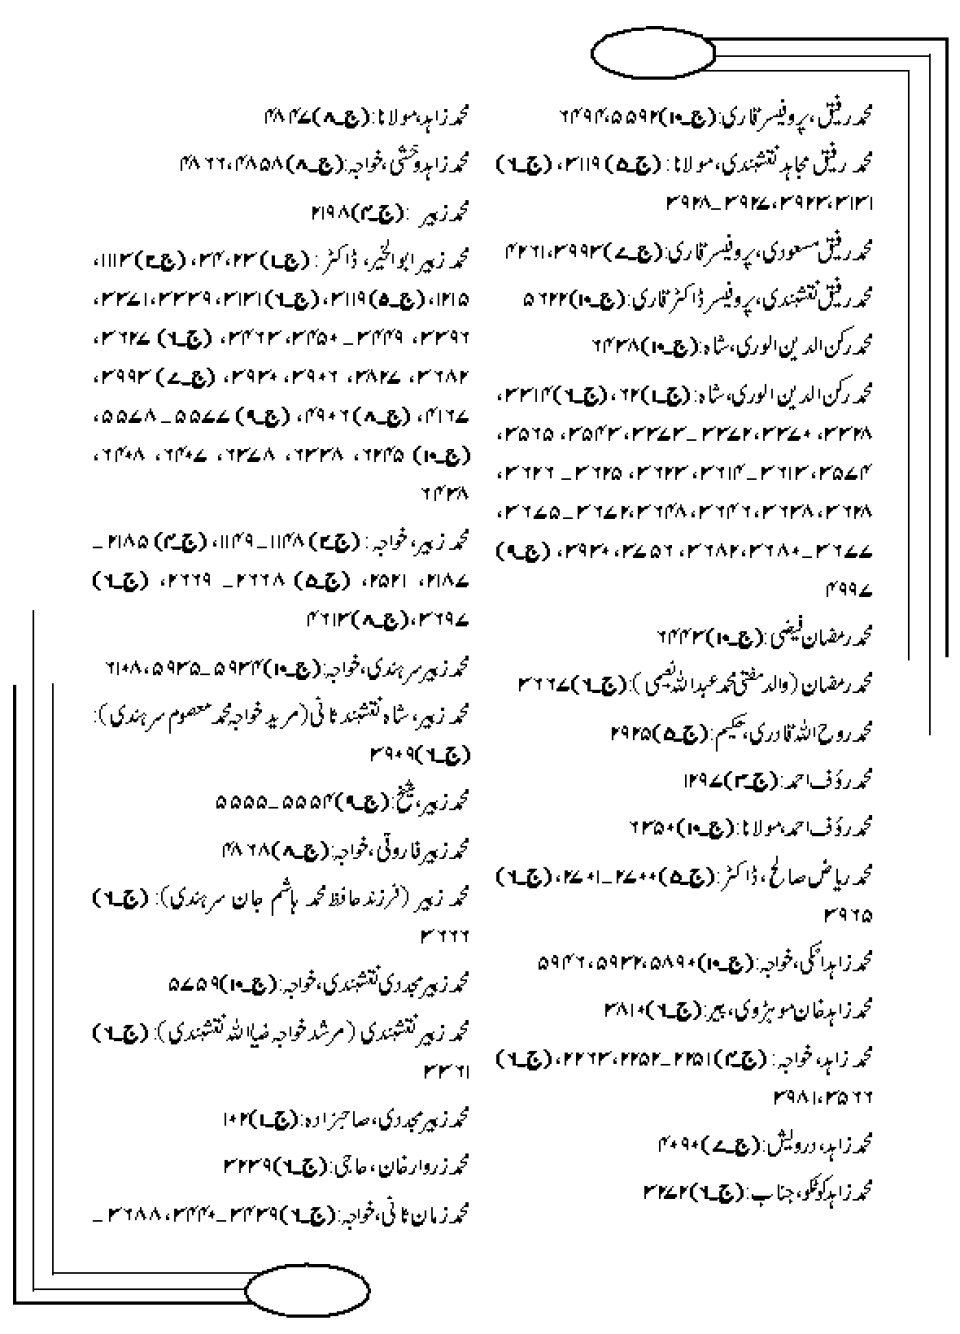 محمد رفیق، پروفیسر قاری:(ج۔۱۰)۵۵۹۲،۶۴۹۴
محمد رفیق مجاہد نقشبندی، مولانا: (ج۔۵)۳۱۱۹، (ج۔۶)
۳۱۳۱،۳۹۲۳،۳۹۲۷۔۳۹۲۸
محمد رفیق مسعودی، پروفیسر قاری:(ج۔۷)۳۹۹۳،۴۲۶۱
محمد رفیق نقشبندی، پروفیسر ڈاکٹر قاری:(ج۔۱۰)۵۶۲۲
محمد رکن الدین الوری، شاہ:(ج۔۱۰)۶۴۳۸
محمد رکن الدین الوری، شاہ:(ج۔۱)۶۲، (ج۔۶)۳۳۱۴،
۳۳۲۸، ۳۳۷۰،۳۳۷۲۔۳۳۷۳،۳۵۴۳، ۳۵۶۵،
۳۵۷۴،۳۶۱۳۔۳۶۱۴، ۳۶۲۳، ۳۶۲۵۔۳۶۲۶،
۳۶۲۸،۳۶۳۸،۳۶۴۶،۳۶۴۸،۳۶۷۲۔۳۶۷۵،
۳۶۷۷۔۳۶۸۰،۳۶۸۲، ۳۷۵۶، ۳۹۳۰، (ج۔۹)
۴۹۹۷
محمد رمضان فیضی:(ج۔۱۰)۶۴۴۳
محمد رمضان (والد مفتی محمد عبداللہ نعیمی):(ج۔۶)۳۶۶۷
محمد روح اللہ قادری، حکیم:(ج۔۵)۲۹۲۵
محمد رؤف احمد:(ج۔۳)۱۲۹۷
محمد رؤف احمد، مولانا:(ج۔۱۰)۶۳۵۰
محمد ریاض صالح، ڈاکٹر:(ج۔۵)۲۷۰۰۔۲۷۰۱، (ج۔۶)
۳۹۶۵
محمد زاہد اٹکی، خواجہ:(ج۔۱۰)۵۸۹۰،۵۹۳۲،۵۹۴۶
محمد زاہد خان موہڑوی، پیر:(ج۔۶)۳۸۱۰
محمد زاہد، خواجہ:(ج۔۴)۲۲۵۱۔۲۲۵۲،۲۲۶۳، (ج۔۶)
۳۵۶۶،۳۹۸۱
محمد زاہد، درویش:(ج۔۷)۴۰۹۰
محمد زاہد کوٹکو، جناب:(ج۔۶)۳۲۷۲
محمد زاہد، مولانا:(ج۔۸)۴۸۴۷
محمد زاہد وخشی، خواجہ:(ج۔۸)۴۸۵۸،۴۸۶۶
محمد زبیر :(ج۔۴)۲۱۹۸
محمد زبیر ابوالخیر، ڈاکٹر:(ج۔۱)۲۳، ۳۴، (ج۔۳)۱۱۱۳،
۱۲۱۵، (ج۔۵)۳۱۱۹، (ج۔۶)۳۱۳۱، ۳۳۳۹، ۳۳۷۱،
۳۳۹۶، ۳۴۴۹۔۳۴۵۰، ۳۴۶۳، (ج۔۶)۳۶۲۷،
۳۶۸۲، ۳۸۲۷، ۳۹۰۶، ۳۹۳۰، (ج۔۷)۳۹۹۳،
۴۱۶۷، (ج۔۸)۴۹۰۶، (ج۔۹)۵۵۷۷۔۵۵۷۸،
(ج۔۱۰)۶۲۴۵، ۶۳۳۸، ۶۳۷۸، ۶۴۰۷، ۶۴۰۸،
۶۴۳۸
محمد زبیر، خواجہ:(ج۔۳)۱۱۴۸۔۱۱۴۹، (ج۔۴)۲۱۸۵۔
۲۱۸۷، ۲۵۲۱، (ج۔۵)۲۶۶۸۔۲۶۶۹، (ج۔۶)
۳۶۹۷، (ج۔۸)۴۶۱۳
محمد زبیر سرہندی، خواجہ:(ج۔۱۰)۵۹۳۴۔۵۹۳۵،۶۱۰۸
محمد زبیر، شاہ نقشبند ثانی (مرید خواجہ محمد معصوم سرہندی):
(ج۔۶)۳۹۰۹
محمد زبیر، شیخ:(ج۔۹)۵۵۵۴۔۵۵۵۵
محمد زبیر فاروقی، خواجہ:(ج۔۸)۴۸۶۸
محمد زبیر (فرزند حافظ محمد ہاشم جان سرہندی): (ج۔۶)
۳۶۶۶
محمد زبیر مجددی نقشبندی، خواجہ:(ج۔۱۰)۵۷۵۹
محمد زبیر نقشبندی (مرشد خواجہ ضیاء اللہ نقشبندی):(ج۔۶)
۳۳۶۱
محمد زبیر مجددی، صاحبزادہ:(ج۔۱)۱۰۲
محمد زروار خان، حاجی:(ج۔۶)۳۲۳۹
محمد زمان ثانی، خواجہ:(ج۔۶)۳۴۳۹۔۳۴۴۰،۳۶۸۸۔